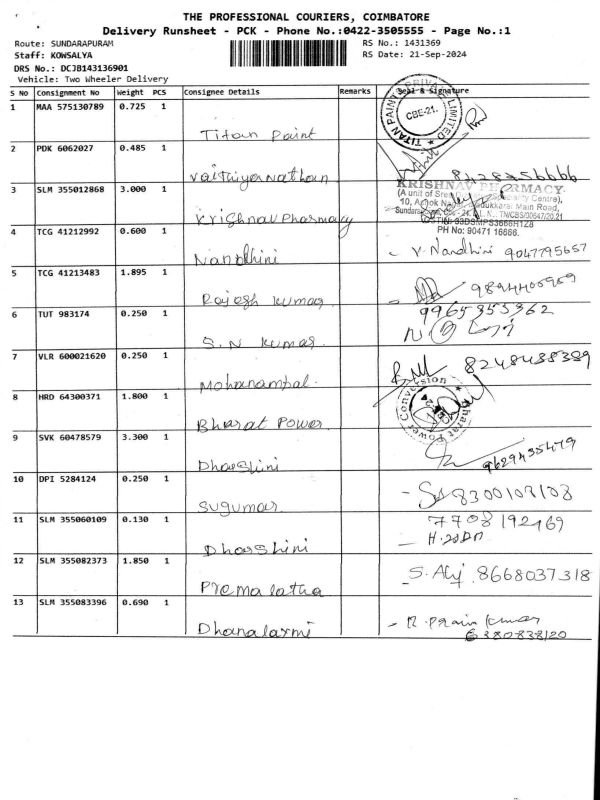 THE PROFESSIONAL COURIERS, COIMBATORE
Delivery Runsheet - PCK - Phone No.:0422-3505555 - Page No.:1
Route: SUNDARAPURAM
RS No.: 1431369
Staff: KOWSALYA
RS Date: 21-Sep-2024
DRS No.: DCJB143136901
Vehicle: Two Wheeler Delivery
S No Consignment No Weight PCS Consignee Details Remarks Seal & Signature
1 MAA 575130789 0.725 1
Titan Paint
TITAN PAINTS PRIVATE LIMITED
CBE-21.
2 PDK 6062027 0.485 1
Vaithiyanathan
3 SLM 355012868 3.000 1
Krishnav Pharmacy
KRISHNAV PHARMACY
PH No: 90471 16666.
4 TCG 41212992 0.600 1
Nandhini
V. Nandhini 9047795657
5 TCG 41213483 1.895 1
Rajesh Kumar
6 TUT 983174 0.250 1
S.N Kumar
9965355362
7 VLR 600021620 0.250 1
Mohanampal
8248438389
8 HRD 64300371 1.800 1
Bharat Power
Bharat Power Conversion
9 SVK 60478579 3.300 1
Dharshini
9629435479
10 DPI 5284124 0.250 1
Sugumar
8300108108
11 SLM 355060109 0.130 1
Dharshini
7708192469
12 SLM 355082373 1.850 1
Premalatha
8668037318
13 SLM 355083396 0.690 1
Dhanalaxmi
6380838120